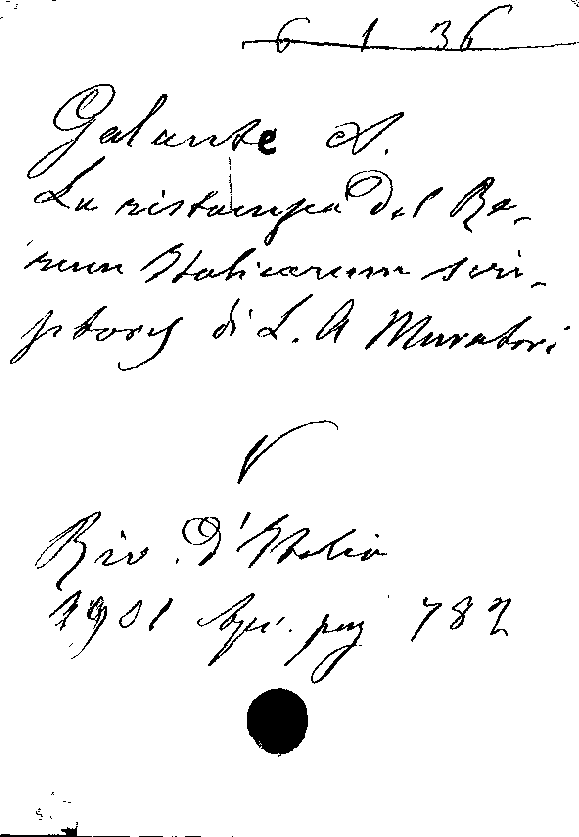 6 1 36
Galante A.
La ristampa del Re-
rum Italicarum scri-
ptores di L. A Muratori
V
Riv. d'Italia
1901 Apr. pag 782